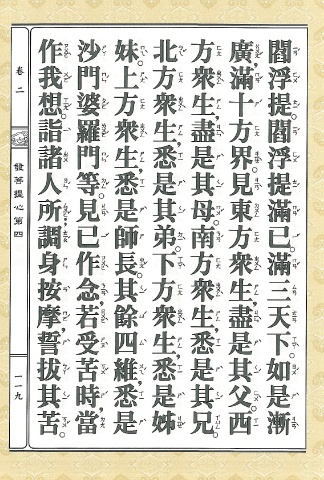 閻浮提。閻浮提滿已。滿三天下。如是漸
廣滿十方界。見東方衆生。盡是其父。西
方衆生。盡是其母。南方衆生。悉是其兄。
北方衆生。悉是其弟。下方衆生。悉是姊
妹。上方衆生。悉是師長。其餘四維。悉是
沙門婆羅門等。見已作念。若受苦時。當
作我想。詣諸人所。調身按摩。誓拔其苦。
卷二
發菩提心第四
一一九